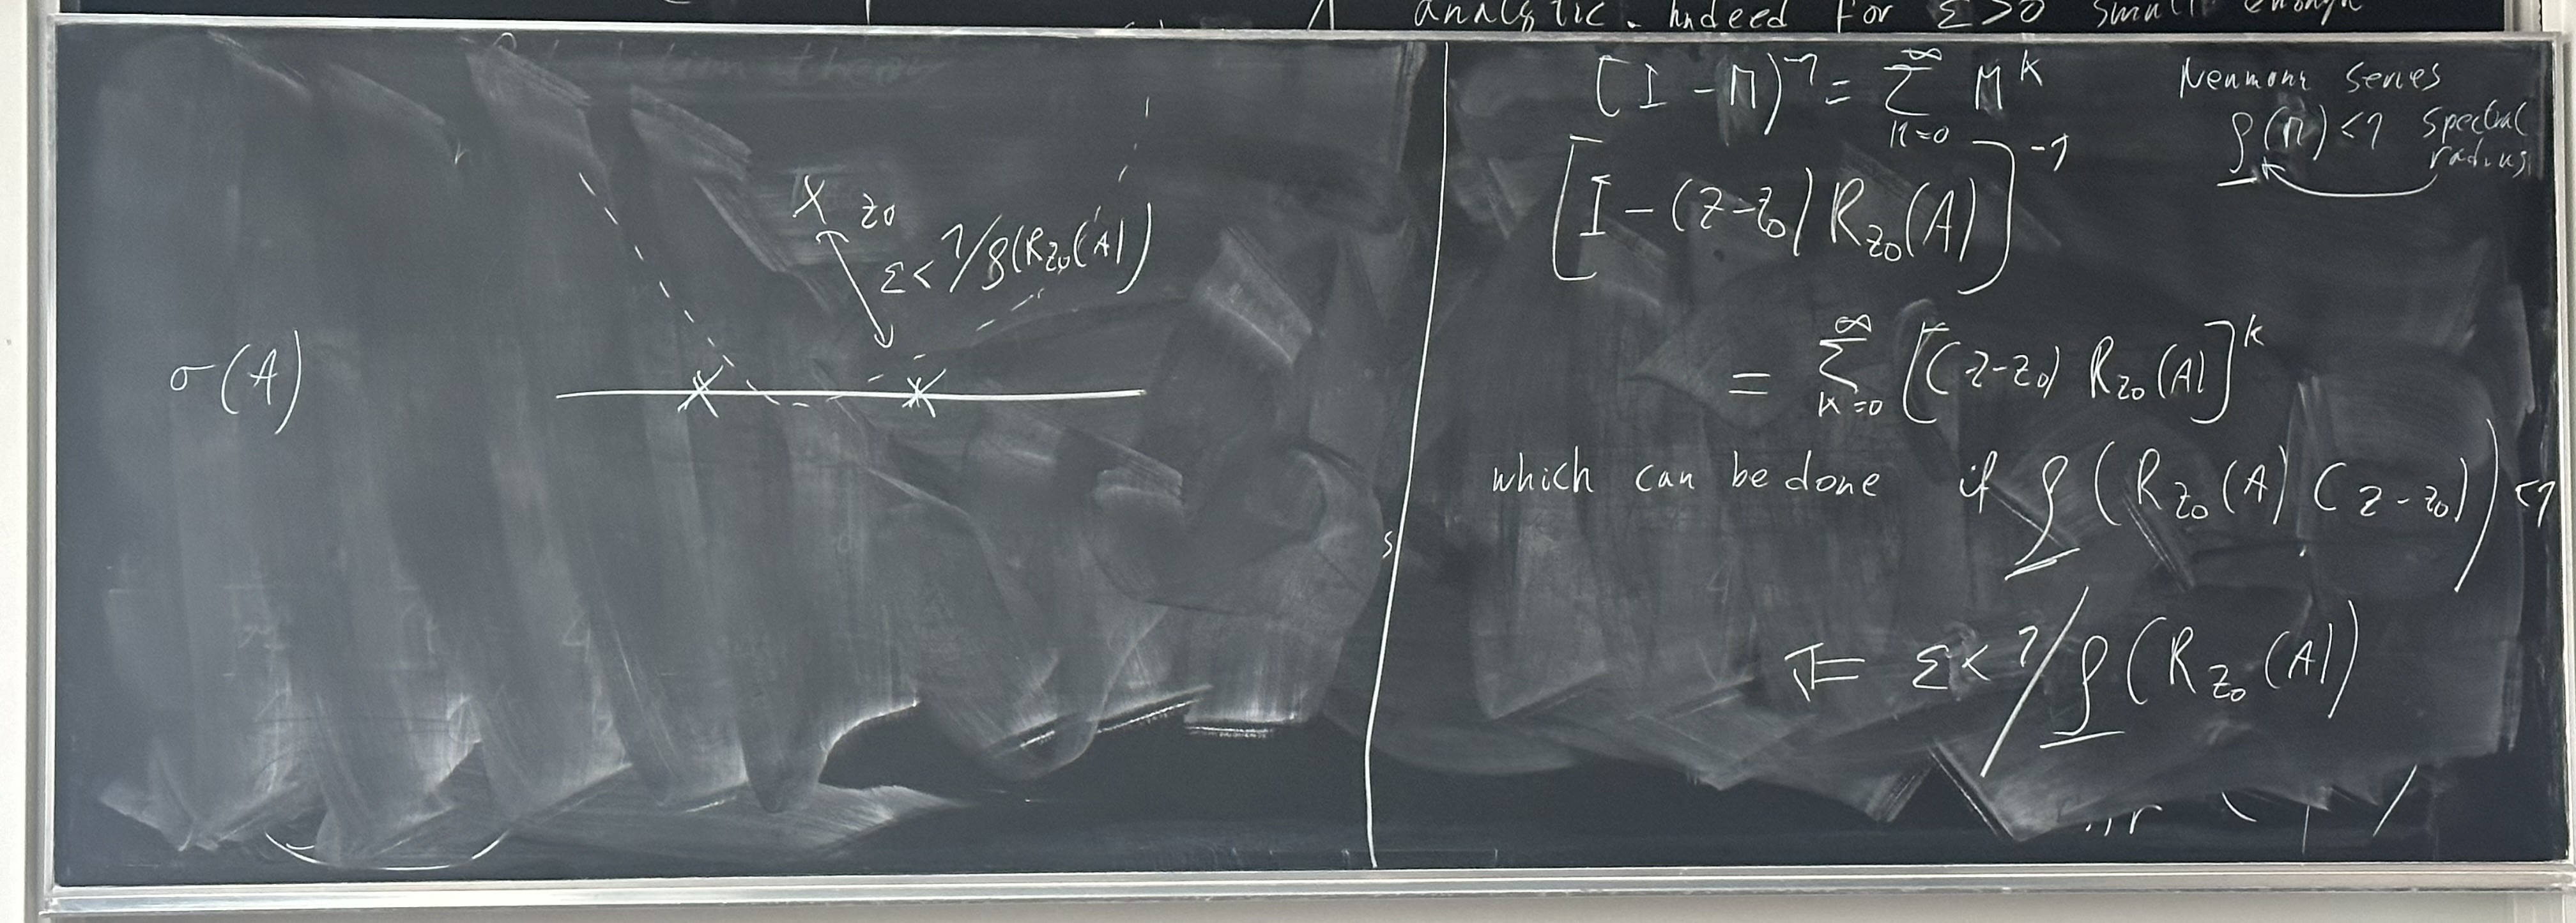 analytic. Indeed for ε>0 small enough
z₀
ε < 1/ρ(R_{z₀}(A))
σ(A)
[I - M]⁻¹ = ∑_{k=0}^{∞} M^k
Neumann Series
ρ(M) < 1 spectral
radius
[I - (z-z₀) R_{z₀}(A)]⁻¹
= ∑_{k=0}^{∞} [(z-z₀) R_{z₀}(A)]^k
which can be done if ρ(R_{z₀}(A) (z-z₀)) < 1
⇐ ε < 1/ρ(R_{z₀}(A))